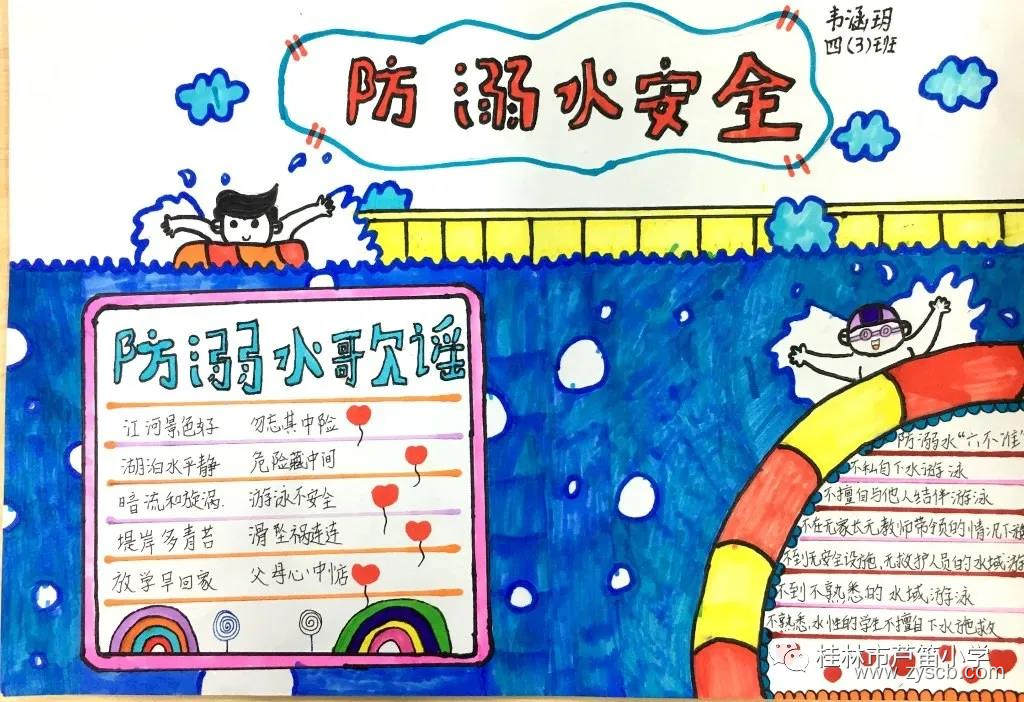 韦涵玥
四(3)班
防溺水安全
防溺水歌谣
江河景色好 勿忘其中险
湖泊水平静 危险藏中间
暗流和旋涡 游泳不安全
堤岸多青苔 滑坠祸连连
放学早回家 父母心中惦
防溺水"六不准"
不私自下水游泳
不擅自与他人结伴游泳
不在无家长无教师带领的情况下游
不到无安全设施、无救护人员的水域游
不到不熟悉的水域游泳
不熟悉水性的学生不擅自下水施救
桂林市芦笛小学
www.zyscb.com